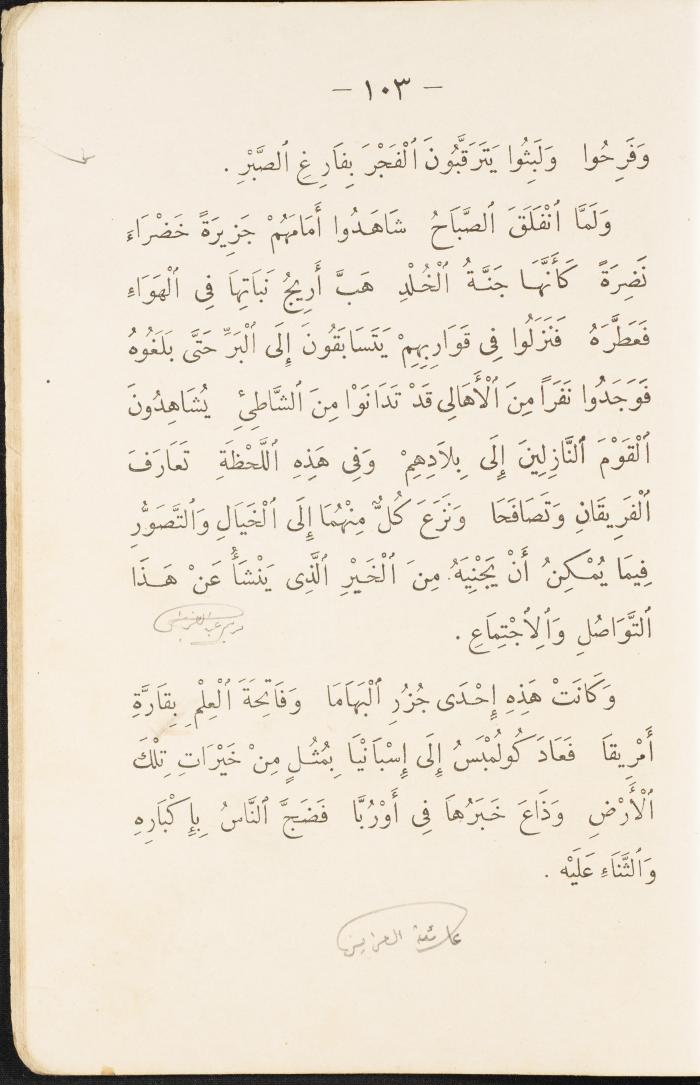 — ١٠٣ —
وَفَرِحُوا وَلَبِثُوا يَتَرَقَّبُونَ ٱلْفَجْرَ بِفَارِغِ ٱلصَّبْرِ .
وَلَمَّا ٱنْفَلَقَ ٱلصَّبَاحُ شَاهَدُوا أَمَامَهُمْ جَزِيرَةً خَضْرَاءَ
نَضِرَةً كَأَنَّهَا جَنَّةُ ٱلْخُلْدِ هَبَّ أَرِيجُ نَبَاتِهَا فِى ٱلْهَوَاءِ
فَعَطَّرَهُ فَنَزَلُوا فِى قَوَارِبِهِمْ يَتَسَابَقُونَ إِلَى ٱلْبَرِّ حَتَّى بَلَغُوهُ
فَوَجَدُوا نَفَرًا مِنَ ٱلْأَهَالِى قَدْ تَدَانَوْا مِنَ ٱلشَّاطِئِ يُشَاهِدُونَ
ٱلْقَوْمَ ٱلنَّازِلِينَ إِلَى بِلَادِهِمْ وَفِى هَذِهِ ٱللَّحْظَةِ تَعَارَفَ
ٱلْفَرِيقَانِ وَتَصَافَحَا وَنَزَعَ كُلٌّ مِنْهُمَا إِلَى ٱلْخَيَالِ وَٱلتَّصَوُّرِ
فِيمَا يُمْكِنُ أَنْ يَجْنِيَهُ مِنَ ٱلْخَيْرِ ٱلَّذِى يَنْشَأُ عَنْ هَذَا
ٱلتَّوَاصُلِ وَٱلِٱجْتِمَاعِ .
وَكَانَتْ هَذِهِ إِحْدَى جُزُرِ ٱلْبَهَامَا وَفَاتِحَةَ ٱلْعِلْمِ بِقَارَّةِ
أَمْرِيقَا فَعَادَ كُولُمْبَسُ إِلَى إِسْبَانْيَا بِمُثُلٍ مِنْ خَيْرَاتِ تِلْكَ
ٱلْأَرْضِ وَذَاعَ خَبَرُهَا فِى أَوْرُبَّا فَضَجَّ ٱلنَّاسُ بِإِكْبَارِهِ
وَٱلثَّنَاءِ عَلَيْهِ .